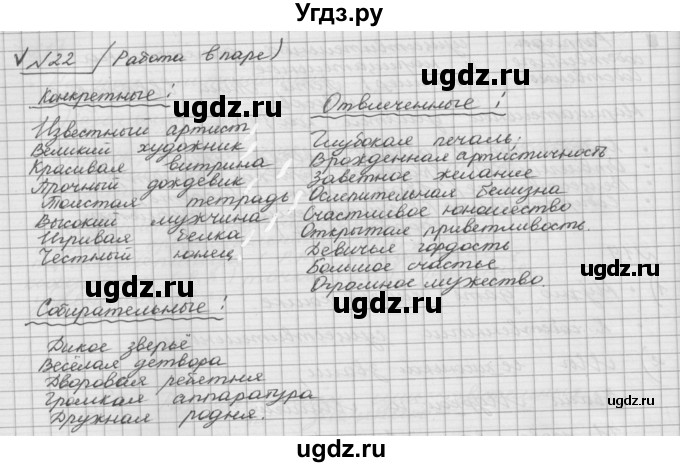 Угдз.ру
V N22 (Работа в паре)
Конкретные:
Известный артист
Великий художник
Красивая витрина
Прочный дождевик
Толстая тетрадь
Высокий мужчина
Игривая белка
Честный юнец
Отвлеченные:
Глубокая печаль;
Врожденная артистичность
Заветное желание
Ослепительная белизна
Счастливое юношество
Открытая приветливость.
Девичья гордость
Большое счастье
Огромное мужество.
Собирательные:
Дикое зверьё
Весёлая детвора
Дворовая ребетня
Громкая аппаратура
Дружная родня.
ugdz.ru
ugdz.ru
ugdz.ru
ugdz.ru
ugdz.ru
ugdz.ru
ugdz.ru
ugdz.ru
ugdz.ru